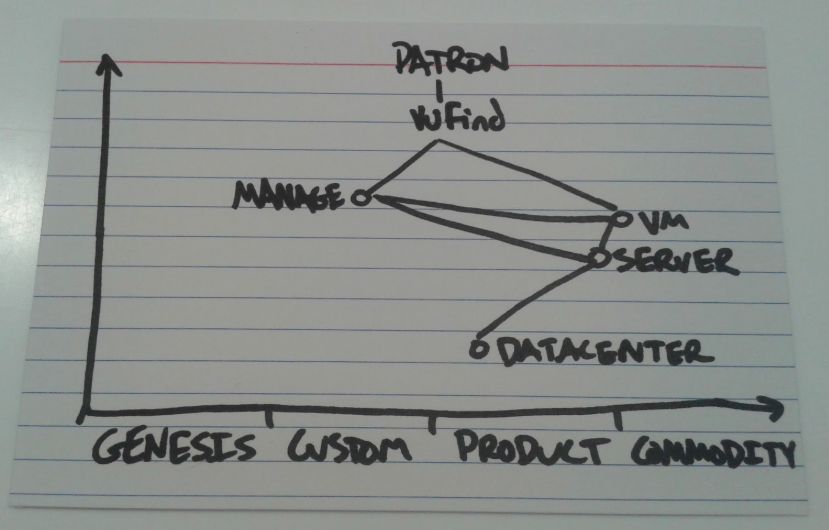 PATRON
VuFind
MANAGE
VM
SERVER
DATACENTER
GENESIS CUSTOM PRODUCT COMMODITY